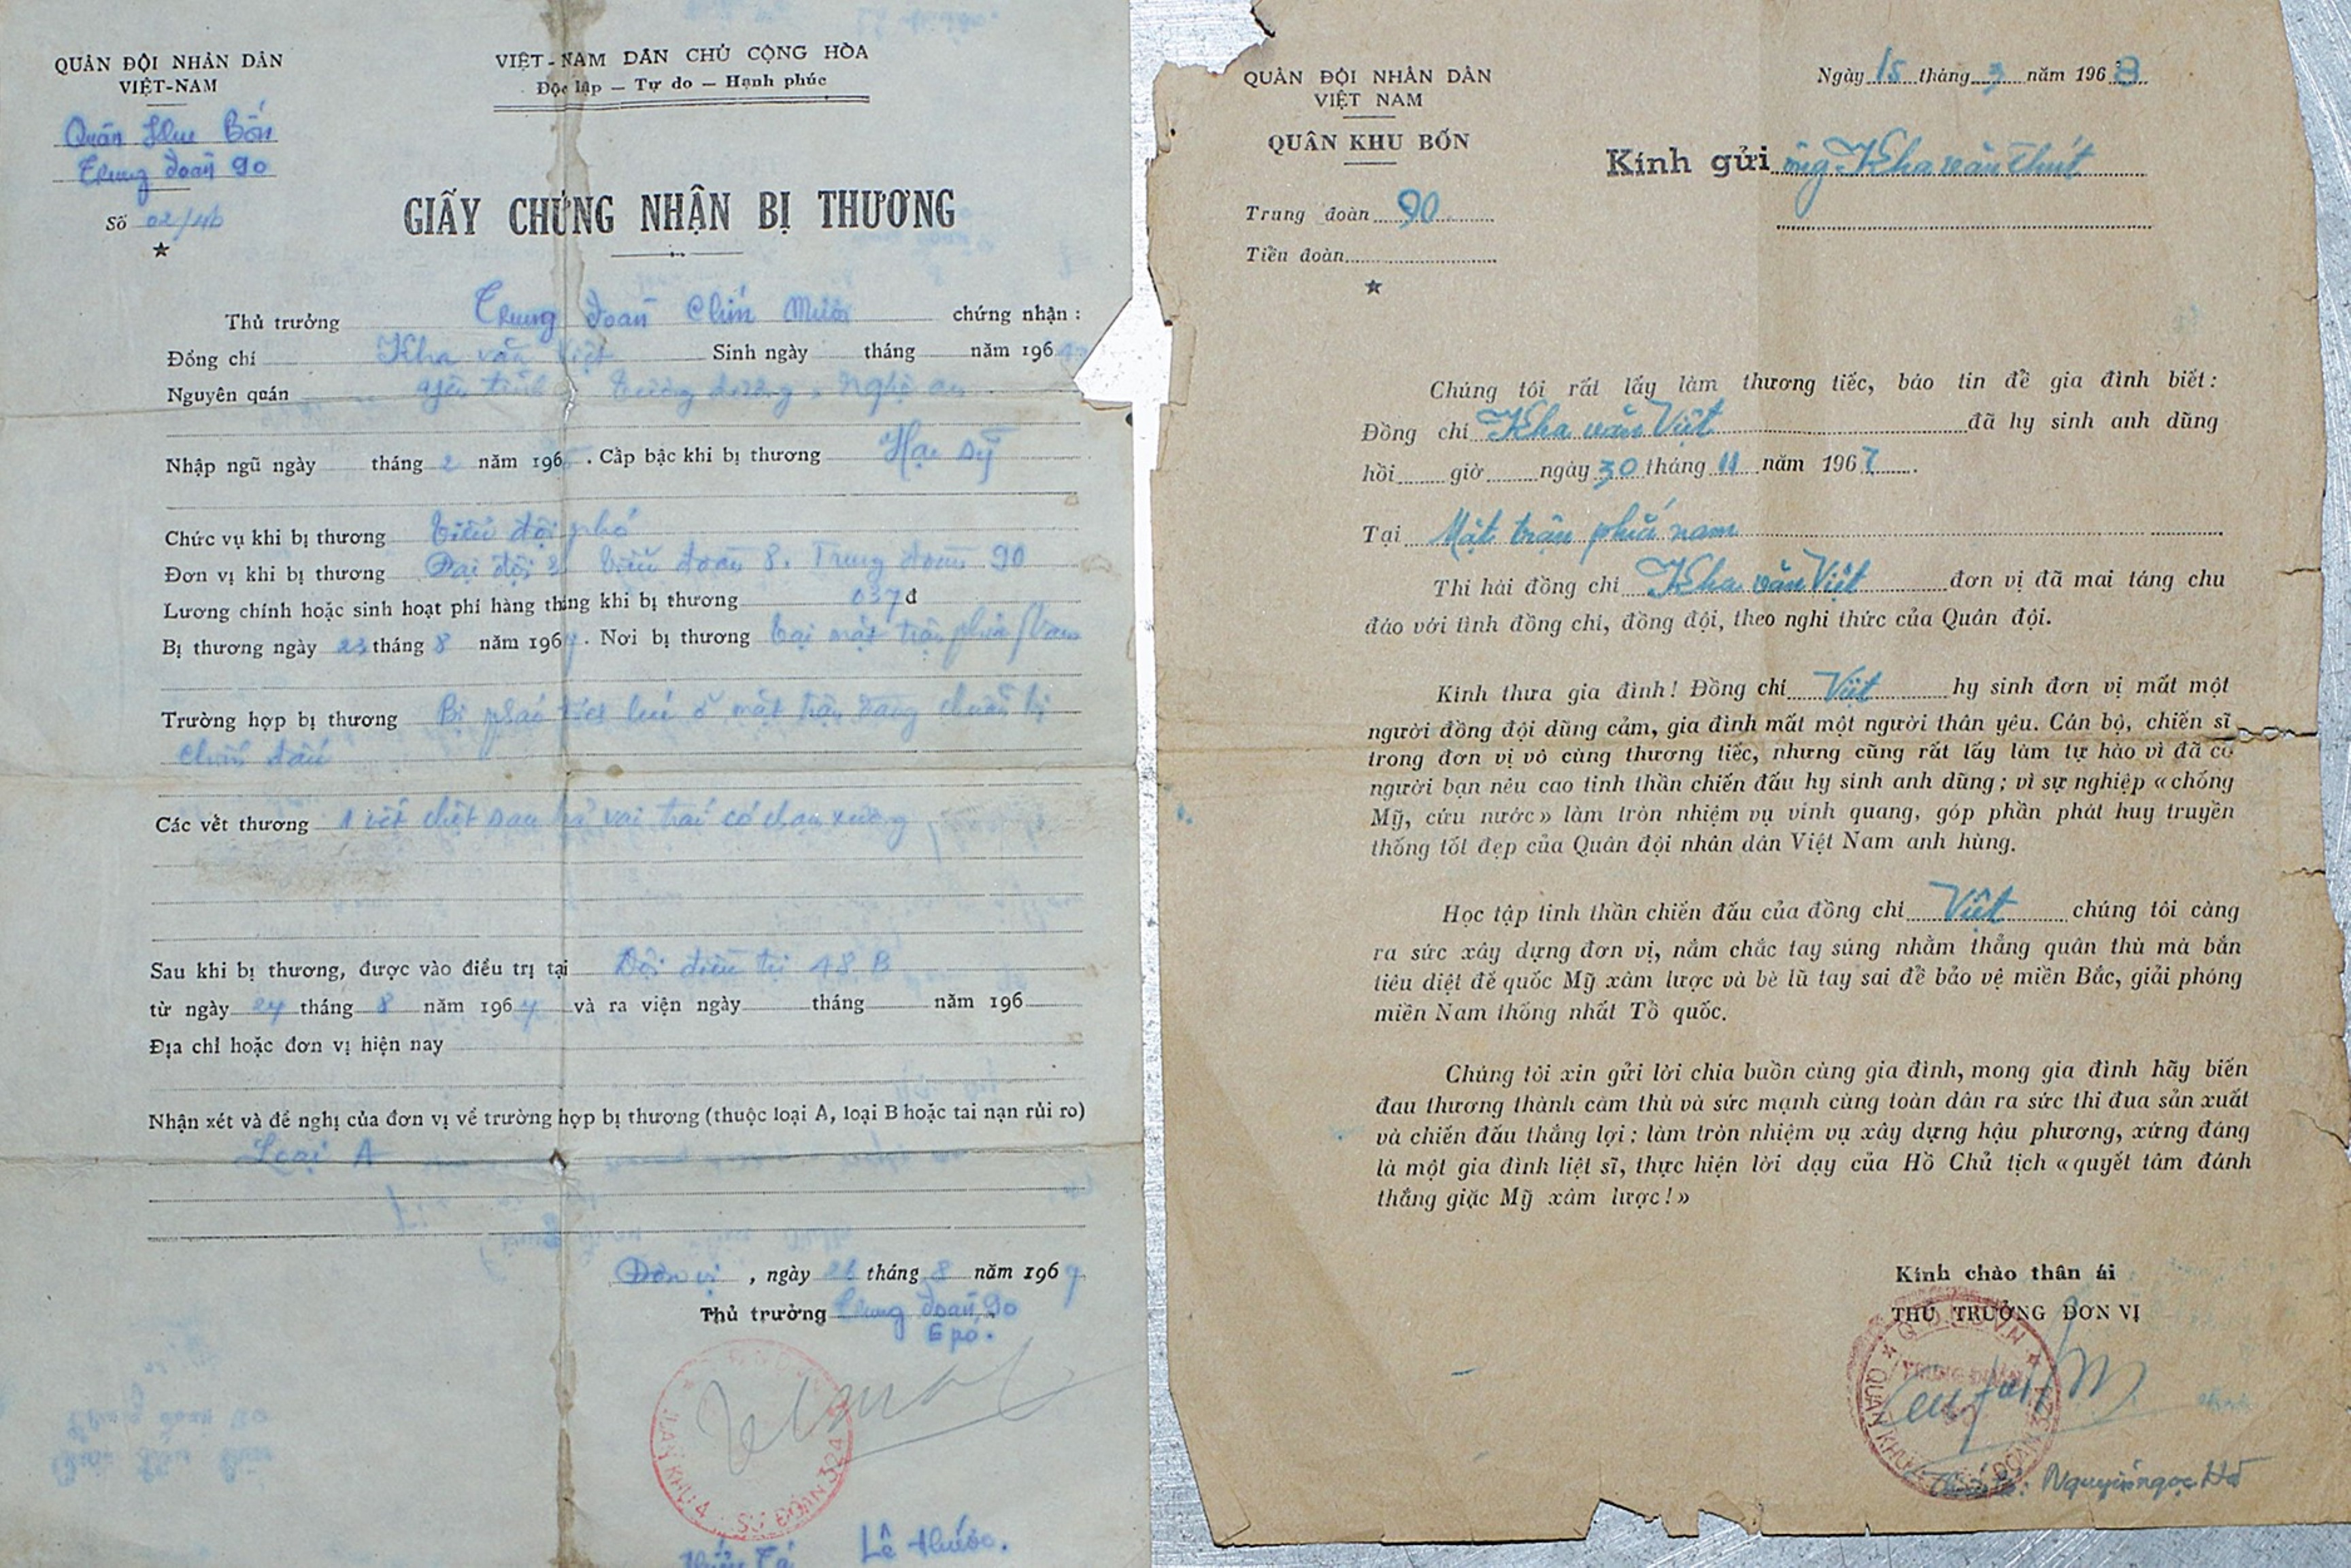 QUÂN ĐỘI NHÂN DÂN
VIỆT-NAM
Quân Khu Bốn
Trung Đoàn 90
Số 02/
VIỆT-NAM DÂN CHỦ CỘNG HÒA
Độc lập — Tự do — Hạnh phúc
GIẤY CHỨNG NHẬN BỊ THƯƠNG
Thủ trưởng Trung Đoàn Chín Mươi chứng nhận :
Đồng chí Kha văn Việt Sinh ngày tháng năm 196
Nguyên quán Yên tĩnh Tương dương, Nghệ an
Nhập ngũ ngày tháng 2 năm 196 . Cấp bậc khi bị thương Hạ sỹ
Chức vụ khi bị thương tiểu đội phó
Đơn vị khi bị thương Đại đội tiểu đoàn 8. Trung đoàn 90
Lương chính hoặc sinh hoạt phí hàng tháng khi bị thương đ
Bị thương ngày 23 tháng 8 năm 1967. Nơi bị thương tại mặt trận phía Nam
Trường hợp bị thương Bị pháo lúc ở mặt trận đang chuẩn bị
chiến đấu
Các vết thương 1 vết sau bả vai trái có chạm xương
Sau khi bị thương, được vào điều trị tại Đội điều trị 48 B
từ ngày 24 tháng 8 năm 1967 và ra viện ngày tháng năm 196
Địa chỉ hoặc đơn vị hiện nay
Nhận xét và đề nghị của đơn vị về trường hợp bị thương (thuộc loại A, loại B hoặc tai nạn rủi ro)
Loại A
Đơn vị , ngày 26 tháng 8 năm 1967
Thủ trưởng Trung Đoàn 90
QUÂN KHU 4 SƯ ĐOÀN 324
Lê thước.
QUÂN ĐỘI NHÂN DÂN
VIỆT NAM
QUÂN KHU BỐN
Trung đoàn 90
Tiểu đoàn
Ngày 15 tháng 3 năm 1968
Kính gửi ông Kha văn Thút
Chúng tôi rất lấy làm thương tiếc, báo tin để gia đình biết:
Đồng chí Kha văn Việt đã hy sinh anh dũng
hồi giờ ngày 30 tháng 11 năm 1967.
Tại Mặt trận phía nam
Thi hài đồng chí Kha văn Việt đơn vị đã mai táng chu
đáo với tình đồng chí, đồng đội, theo nghi thức của Quân đội.
Kính thưa gia đình! Đồng chí Việt hy sinh đơn vị mất một
người đồng đội dũng cảm, gia đình mất một người thân yêu. Cán bộ, chiến sĩ
trong đơn vị vô cùng thương tiếc, nhưng cũng rất lấy làm tự hào vì đã có
người bạn nêu cao tinh thần chiến đấu hy sinh anh dũng; vì sự nghiệp «chống
Mỹ, cứu nước» làm tròn nhiệm vụ vinh quang, góp phần phát huy truyền
thống tốt đẹp của Quân đội nhân dân Việt Nam anh hùng.
Học tập tinh thần chiến đấu của đồng chí Việt chúng tôi càng
ra sức xây dựng đơn vị, nắm chắc tay súng nhằm thẳng quân thù mà bắn
tiêu diệt đế quốc Mỹ xâm lược và bè lũ tay sai để bảo vệ miền Bắc, giải phóng
miền Nam thống nhất Tổ quốc.
Chúng tôi xin gửi lời chia buồn cùng gia đình, mong gia đình hãy biến
đau thương thành căm thù và sức mạnh cùng toàn dân ra sức thi đua sản xuất
và chiến đấu thắng lợi; làm tròn nhiệm vụ xây dựng hậu phương, xứng đáng
là một gia đình liệt sĩ, thực hiện lời dạy của Hồ Chủ tịch «quyết tâm đánh
thắng giặc Mỹ xâm lược!»
Kính chào thân ái
THỦ TRƯỞNG ĐƠN VỊ
QUÂN KHU ĐOÀN 324
Nguyễn ngọc